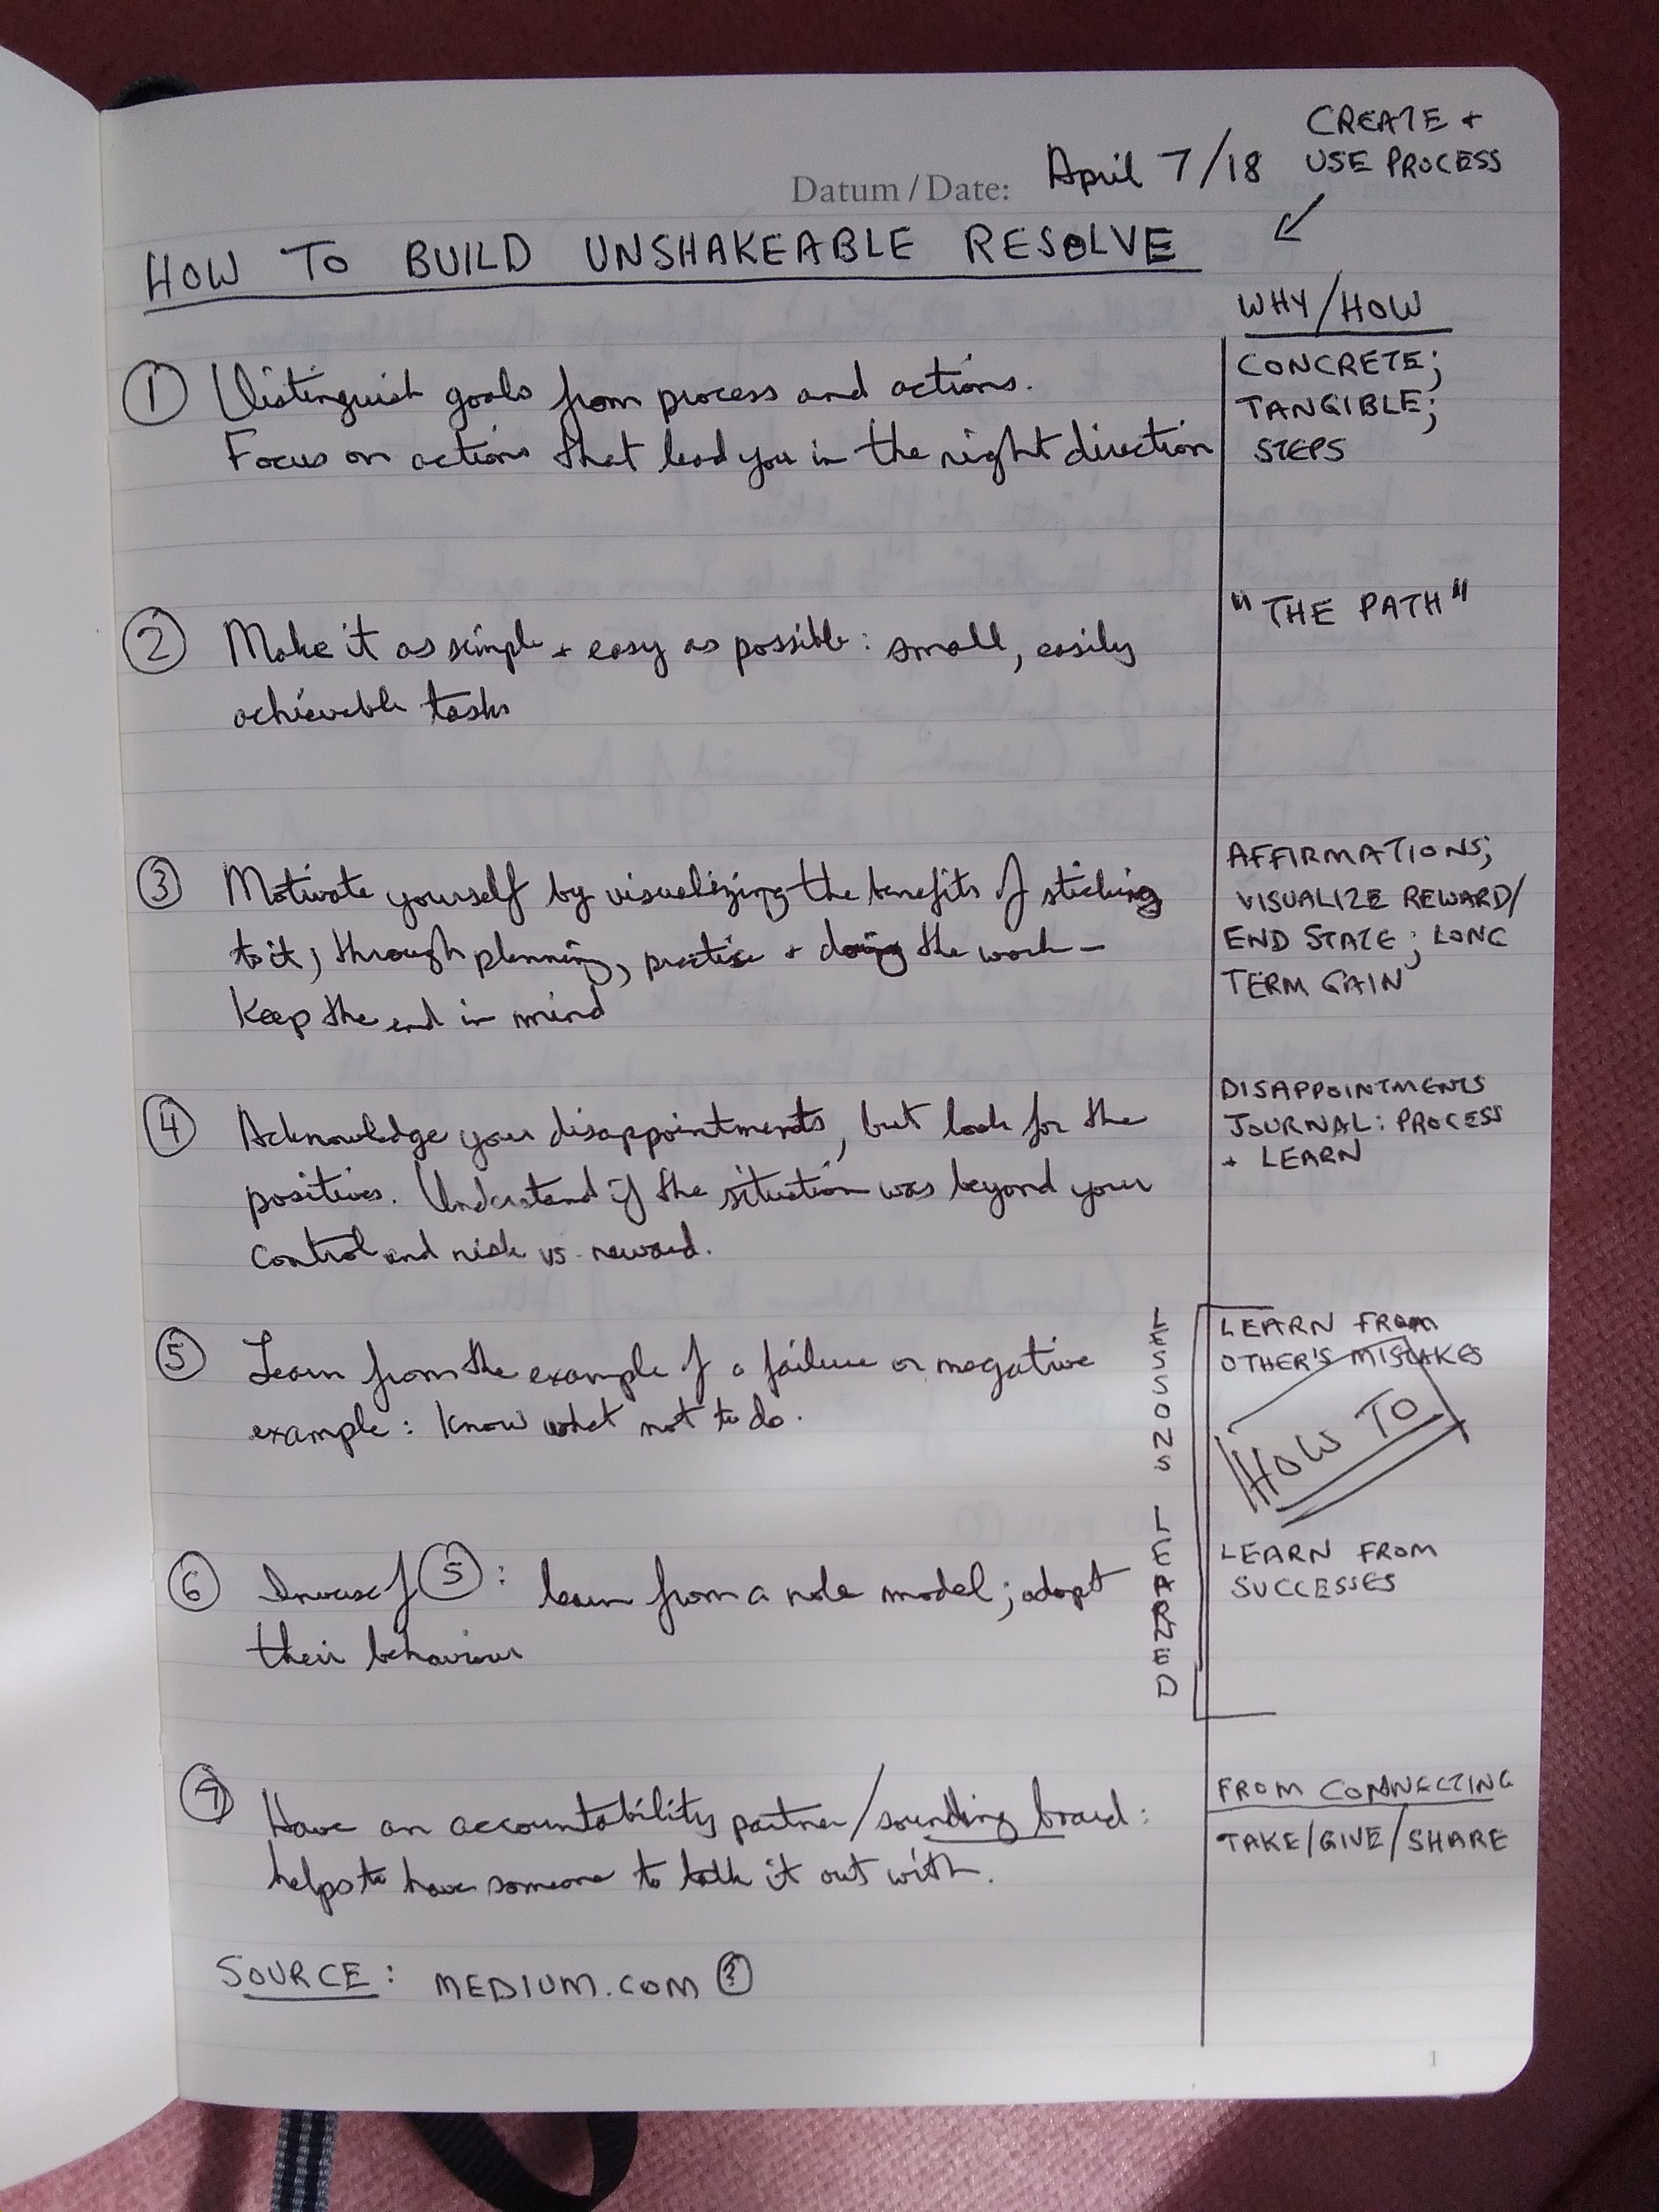 CREATE +
Datum / Date: April 7/18 USE PROCESS
HOW TO BUILD UNSHAKEABLE RESOLVE
WHY/HOW
① Distinguish goals from process and actions.
Focus on actions that lead you in the right direction
CONCRETE;
TANGIBLE;
STEPS
② Make it as simple + easy as possible: small, easily
achievable tasks
"THE PATH"
③ Motivate yourself by visualizing the benefits of sticking
to it; through planning, practise + doing the work –
Keep the end in mind
AFFIRMATIONS;
VISUALIZE REWARD/
END STATE; LONG
TERM GAIN
④ Acknowledge your disappointments, but look for the
positives. Understand if the situation was beyond your
control and risk vs. reward.
DISAPPOINTMENTS
JOURNAL: PROCESS
+ LEARN
⑤ Learn from the example of a failure or negative
example: Know what not to do.
LESSONS LEARNED
LEARN FROM
OTHER'S MISTAKES
HOW TO
⑥ Inverse of ⑤: learn from a role model; adopt
their behaviour
LEARN FROM
SUCCESSES
⑦ Have an accountability partner/sounding board:
helps to have someone to talk it out with.
FROM CONNECTING
TAKE/GIVE/SHARE
SOURCE: MEDIUM.COM ?
1